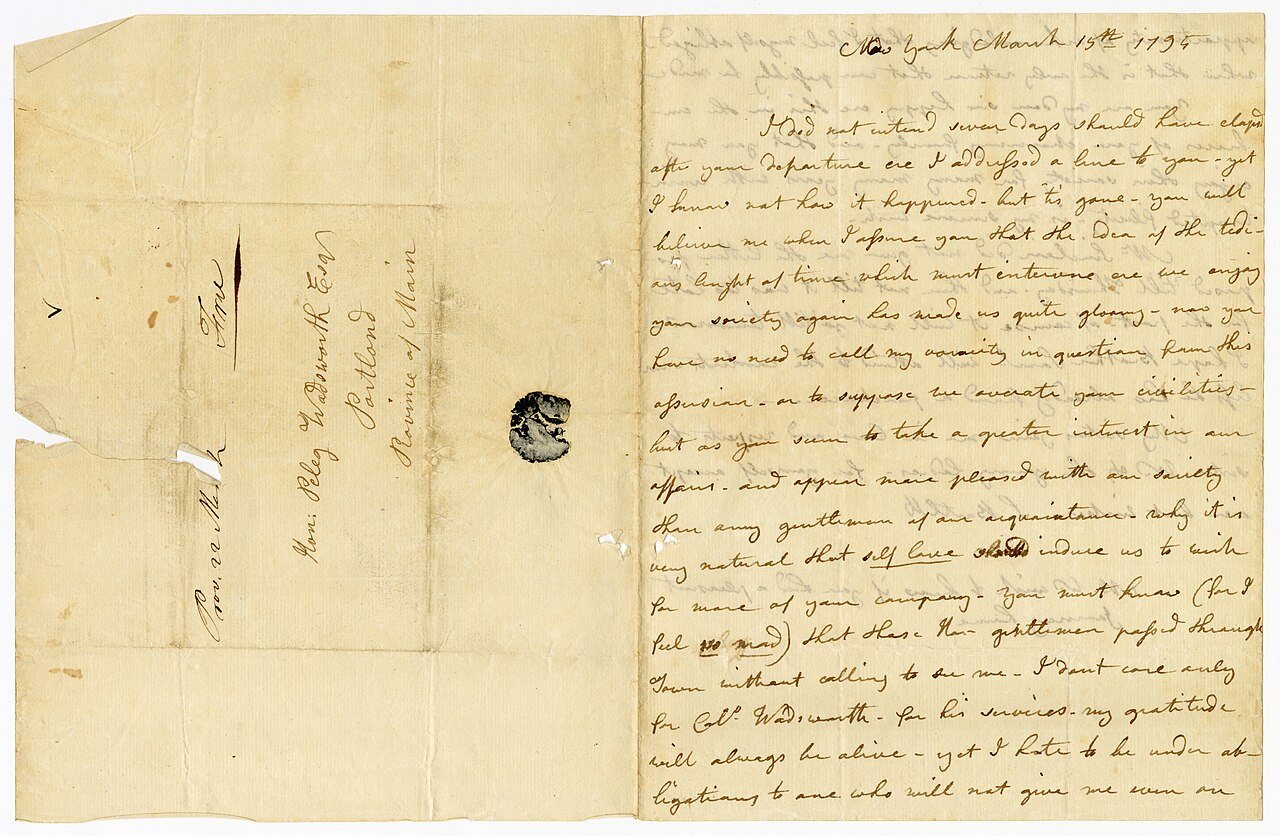 Free
Prov. 22 March
Hon. Peleg Wadsworth Esqr
Portlond
Province of Main
New York March 15th 1795
I did not intend seven days should have elapsd
aftr your departure ere I addressed a line to you - yet
I know not how it happened - but 'tis gone - you will
believe me when I assure you that the idea of the tedi-
ous lenght of time which must intervene ere we enjoy
your society again has made us quite gloomy - now you
have no need to call my voracity in question from this
assersion - or to suppose we overate your civilities -
but as you seem to take a greater interest in our
affairs - and appear more pleased with our society
than any gentleman of our acquaintance - why it is
very natural that self love should induce us to wish
for more of your company - you must know (for I
feel mad) that those Hon- gentlemen passed through
Town without calling to see me - I dont care only
for Coll. Wadsworth - for his services - my gratitude
will always be alive - yet I hate to be under ob-
ligations to one who will not give me even an